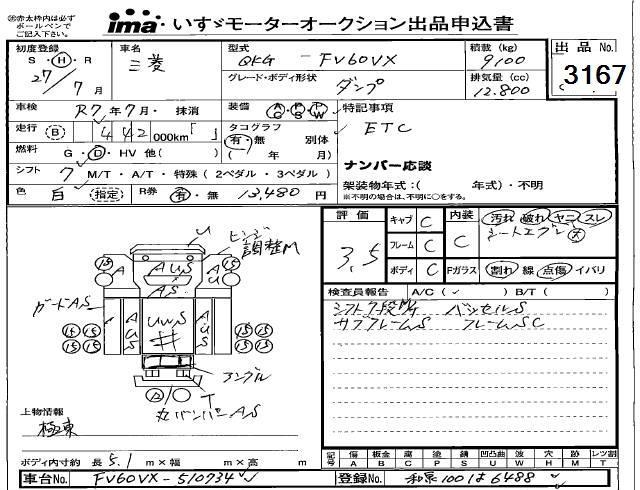 ※赤太枠内は必ず
ボールペンで
ご記入下さい。
ima いすゞモーターオークション出品申込書
初度登録
S・H・R
27/7月
車名
三菱
型式
QKG - FV60VX
グレード・ボディ形状
ダンプ
積載(kg)
9100
排気量(cc)
12.800
出品No.
3167
車検
R7年7月・抹消
走行
B 442000km
燃料
G・D・HV 他( )
シフト
7 M/T・A/T・特殊(2ペダル・3ペダル)
色
白 (指定)
R券 有・無 13,480円
装備
タコグラフ
有・無 別体
( 年 月)
特記事項
ETC
ナンバー応談
架装物年式:( 年式)・不明
※不明の場合は、不明に○をする。
評価
3.5
キャブ C
フレーム C
ボディ C
内装 C
汚れ 破れ ヤニ スレ
Fガラス 割れ 線 点傷 イバリ
検査員報告 A/C( ✓ ) B/T( )
サブフレームS フレームSC
ヒンジ
調整M
U
15 A AUS A 15
AS
ガードAS
14 15 15 15
15 15 15 15
AUS UWS AUS
アングル
T
A
上物情報
極東
ボディ内寸約 長5.1m×幅 m×高 m
記号
傷A 板金B 腐C 塗P 錆S 凹凸曲U 波W 穴H 跡M レツ割T
車台No. FV60VX-510734
登録No. 和泉100は6488